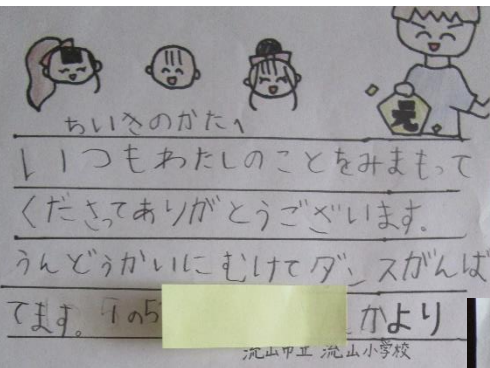 元
ちいきのかたへ
いつもわたしのことをみまもって
くださってありがとうございます。
うんどうかいにむけてダンスがんば
てます。1の5 かより
流山市立 流山小学校